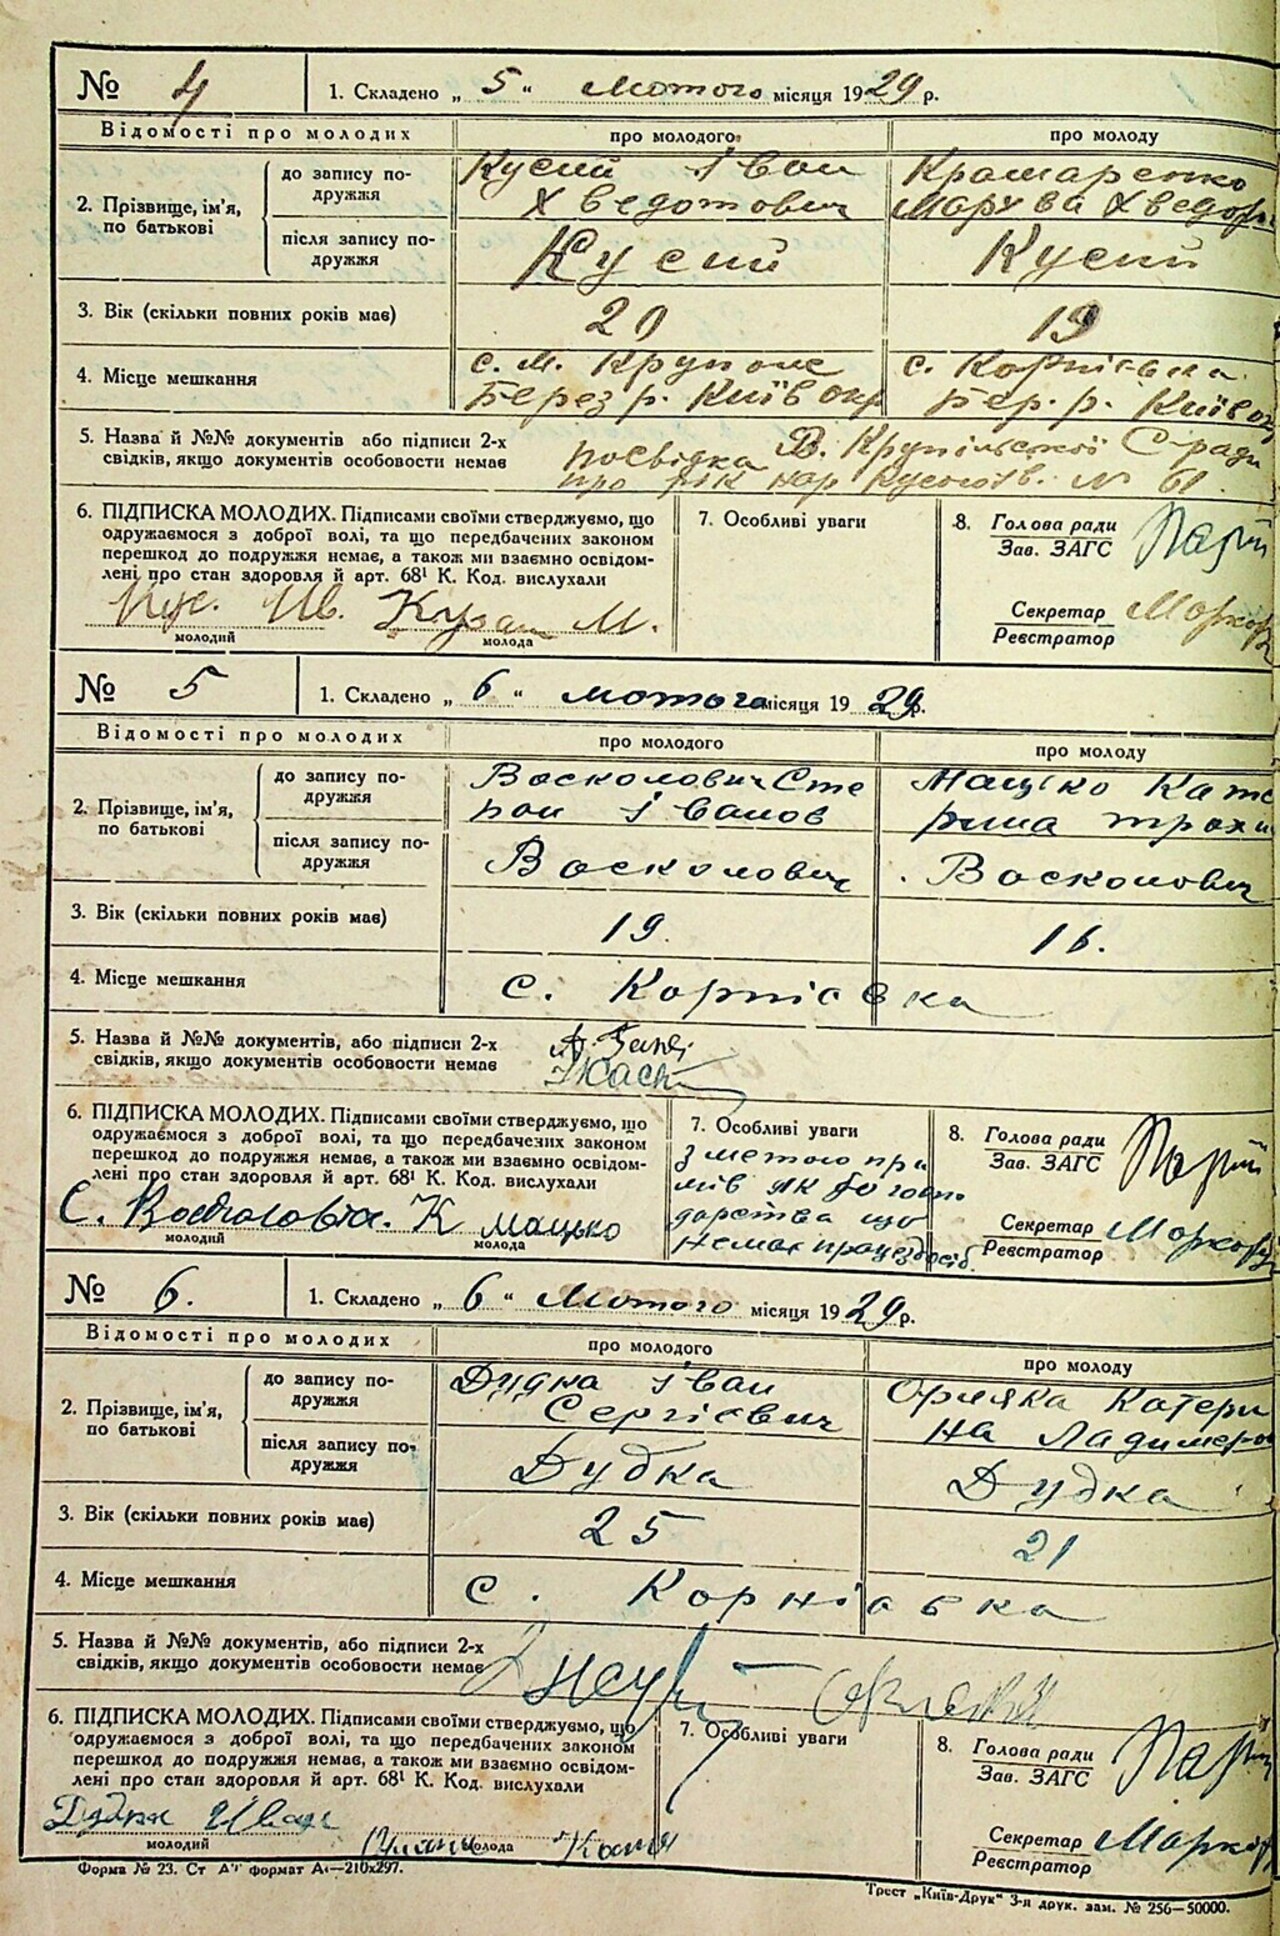 № 4 1. Складено „ 5 “ лютого місяця 1929 р.
Відомості про молодих про молодого про молоду
2. Прізвище, ім’я, по батькові
до запису по-
дружжя
Кусий Іван
Хведотович
Крамаренко
після запису по-
дружжя
Кусий Кусий
3. Вік (скільки повних років має) 20 19
4. Місце мешкання
с. М. Круполе
Берез р. Київ окр
с. Корнієвка
Бер. р. Київ ок
5. Назва й №№ документів або підписи 2-х
свідків, якщо документів особовости немає
посвідка В. Крупільської С-ради
про рік нар № 61.
6. ПІДПИСКА МОЛОДИХ. Підписами своїми стверджуємо, що
одружаємося з доброї волі, та що передбачених законом
перешкод до подружжя немає, а також ми взаємно освідом-
лені про стан здоровля й арт. 68¹ К. Код. вислухали
Кус. Ив. М.
молодий молода
7. Особливі уваги
8. Голова ради
Зав. ЗАГС
Секретар
Реєстратор
№ 5 1. Складено „ 6 “ лютого місяця 1929 р.
Відомості про молодих про молодого про молоду
2. Прізвище, ім’я,
по батькові
до запису по-
дружжя
Восколович Сте
пан Іванов
Мацько Кате
рина Трохи
після запису по-
дружжя
Восколович Восколович
3. Вік (скільки повних років має) 19. 16.
4. Місце мешкання с. Корнієвка
5. Назва й №№ документів, або підписи 2-х
свідків, якщо документів особовости немає
6. ПІДПИСКА МОЛОДИХ. Підписами своїми стверджуємо, що
одружаємося з доброї волі, та що передбачених законом
перешкод до подружжя немає, а також ми взаємно освідом-
лені про стан здоровля й арт. 68¹ К. Код. вислухали
С. К Мацько
молодий молода
7. Особливі уваги
з метою при
як до госпо
дарства що
немає працездосіб.
8. Голова ради
Зав. ЗАГС
Секретар
Реєстратор
№ 6. 1. Складено „ 6 “ Лютого місяця 1929 р.
Відомості про молодих про молодого про молоду
2. Прізвище, ім’я,
по батькові
до запису по-
дружжя
Дудка Іван
Сергієвич
Катери
на Ладимеров
після запису по-
дружжя
Дудка Дудка
3. Вік (скільки повних років має) 25 21
4. Місце мешкання с. Корнієвка
5. Назва й №№ документів, або підписи 2-х
свідків, якщо документів особовости немає
6. ПІДПИСКА МОЛОДИХ. Підписами своїми стверджуємо, що
одружаємося з доброї волі, та що передбачених законом
перешкод до подружжя немає, а також ми взаємно освідом-
лені про стан здоровля й арт. 68¹ К. Код. вислухали
Дудка Иван
молодий молода
7. Особливі уваги
8. Голова ради
Зав. ЗАГС
Секретар
Реєстратор
Форма № 23. Ст формат А₄—210х297.
Трест „Київ-Друк“ 3-я друк. зам. № 256—50000.